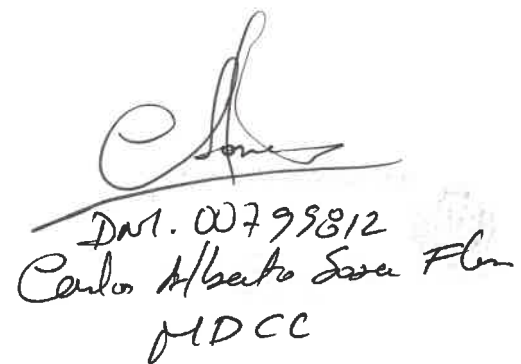 DNI. 00799812
Carlos Alberto Sosa
MDCC